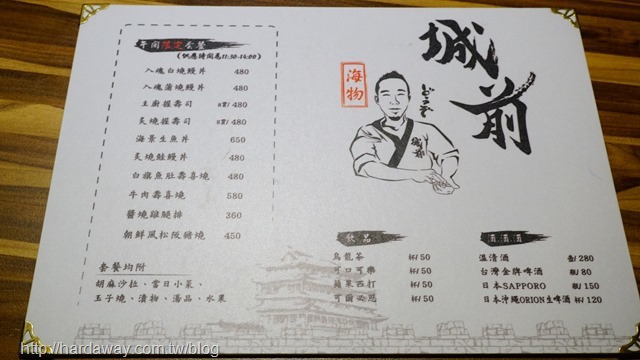 午間限定套餐
(供應時間為11:30-14:00)
入魂白燒鰻丼 480
入魂蒲燒鰻丼 480
主廚握壽司 8貫/480
炙燒握壽司 8貫/480
海景生魚丼 650
炙燒鮭鰻丼 480
白旗魚肚壽喜燒 480
牛肉壽喜燒 580
醬燒雞腿排 360
朝鮮風松阪豬燒 450
套餐均附
胡麻沙拉、當日小菜、
玉子燒、漬物、湯品、水果
城前
海物
どうぞ
城前
飲品
烏龍茶 杯/50
可口可樂 杯/50
蘋果西打 杯/50
可爾必思 杯/50
酒酒酒
溫清酒 壺/280
台灣金牌啤酒 瓶/80
日本SAPPORO 瓶/150
日本沖繩ORION生啤酒 杯/120
http://hardaway.com.tw/blog